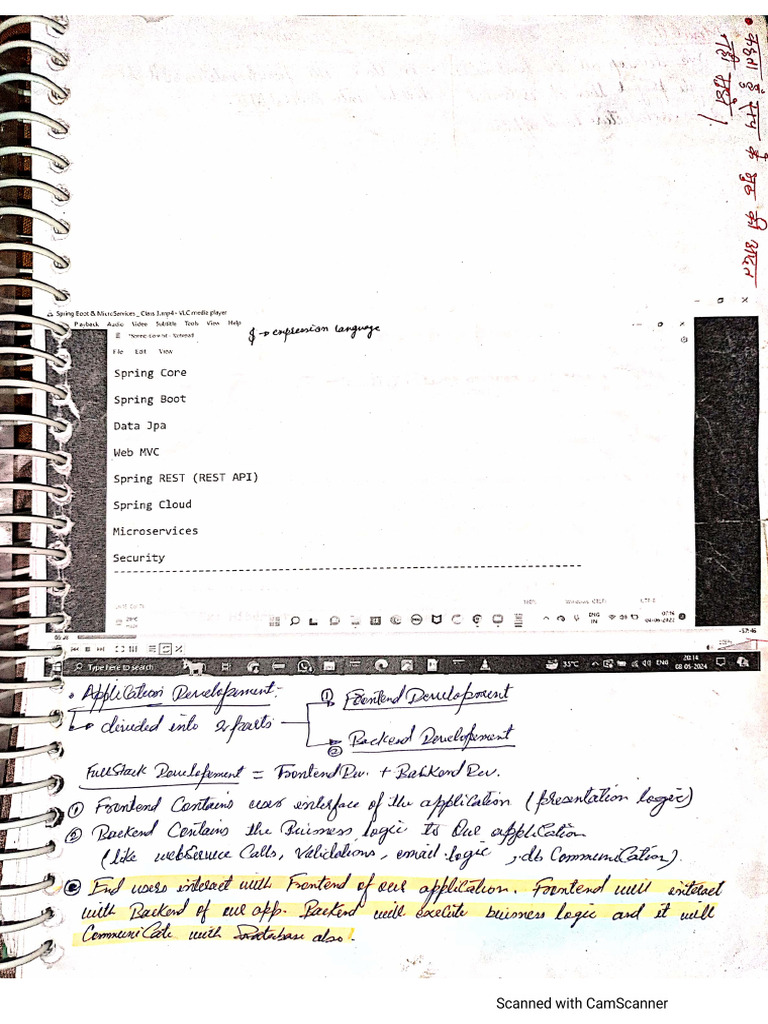 कहना है समय के
Spring Boot & MicroServices _ Class 1.mp4 - VLC media player
Playback Audio Video Subtitle Tools View Help
→ expression language
File Edit View
Spring Core
Spring Boot
Data Jpa
Web MVC
Spring REST (REST API)
Spring Cloud
Microservices
Security
ENG
IN
07:16
-57:46
Type here to search
35°C
ENG
20:14
08-05-2024
• Application Development:-
↳ divided into 2 parts
① Frontend Development
② Backend Development
FullStack Development = Frontend Dev. + Backend Dev.
① Frontend Contains user interface of the application (presentation logic)
② Backend Contains the Business logic to Our application
(like webservice Calls, Validations, email logic, db Communication).
End users interact with Frontend of our application. Frontend will interact
with Backend of our app. Backend will execute business logic and it will
Communicate with Database also.
Scanned with CamScanner